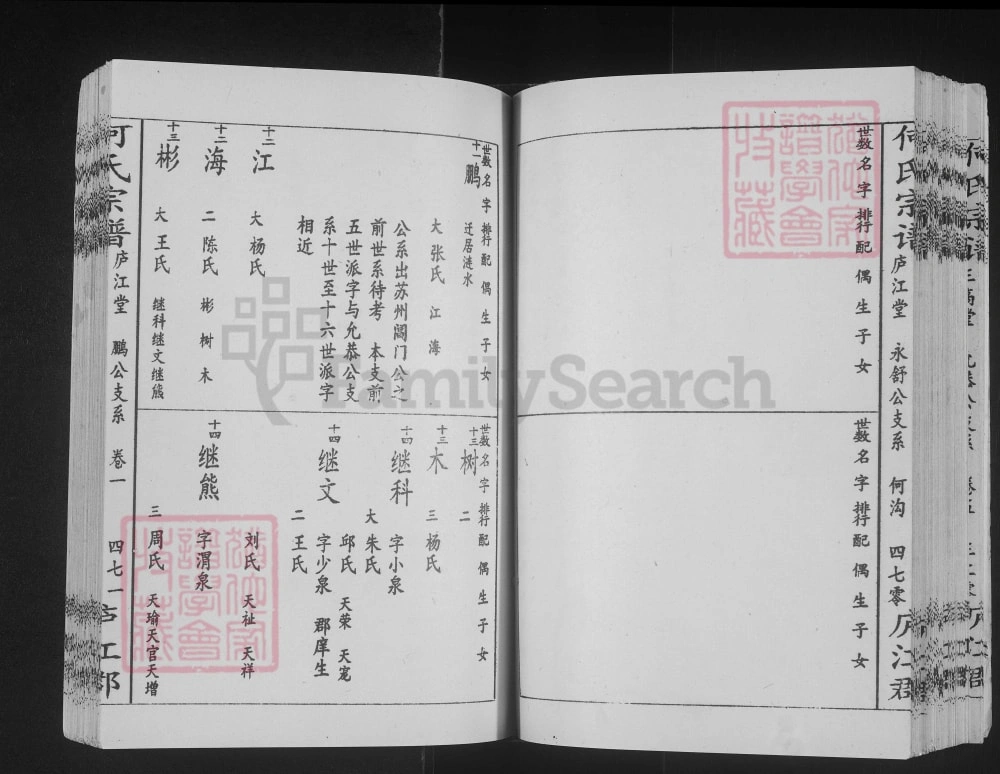 何氏宗谱
庐江堂
永舒公支系
何沟
四七零
世数
名
字
排行
配
偶
生
子
女
世数
名
字
排行
配
偶
生
子
女
世数
名
字
排行
配
偶
生
子
女
十一
鹏
迁居涟水
大 张氏 江 海
公系出苏州阊门公之
前世系待考 本支前
五世派字与允恭公支
系十世至十六世派字
相近
十二
江
大 杨氏
十二
海
二 陈氏 彬 树 木
十三
彬
大 王氏 继科继文继熊
世数
名
字
排行
配
偶
生
子
女
十三
树
二
十三
木
三 杨氏
十四
继科
字小泉
大 朱氏
十四
继文
邱氏 天荣 天宠
字少泉 郡庠生
二 王氏
十四
继熊
刘氏 天祉 天祥
字渭泉
三 周氏 天瑜天官天增
何氏宗谱
庐江堂
鹏公支系
卷一
四七一
FamilySearch